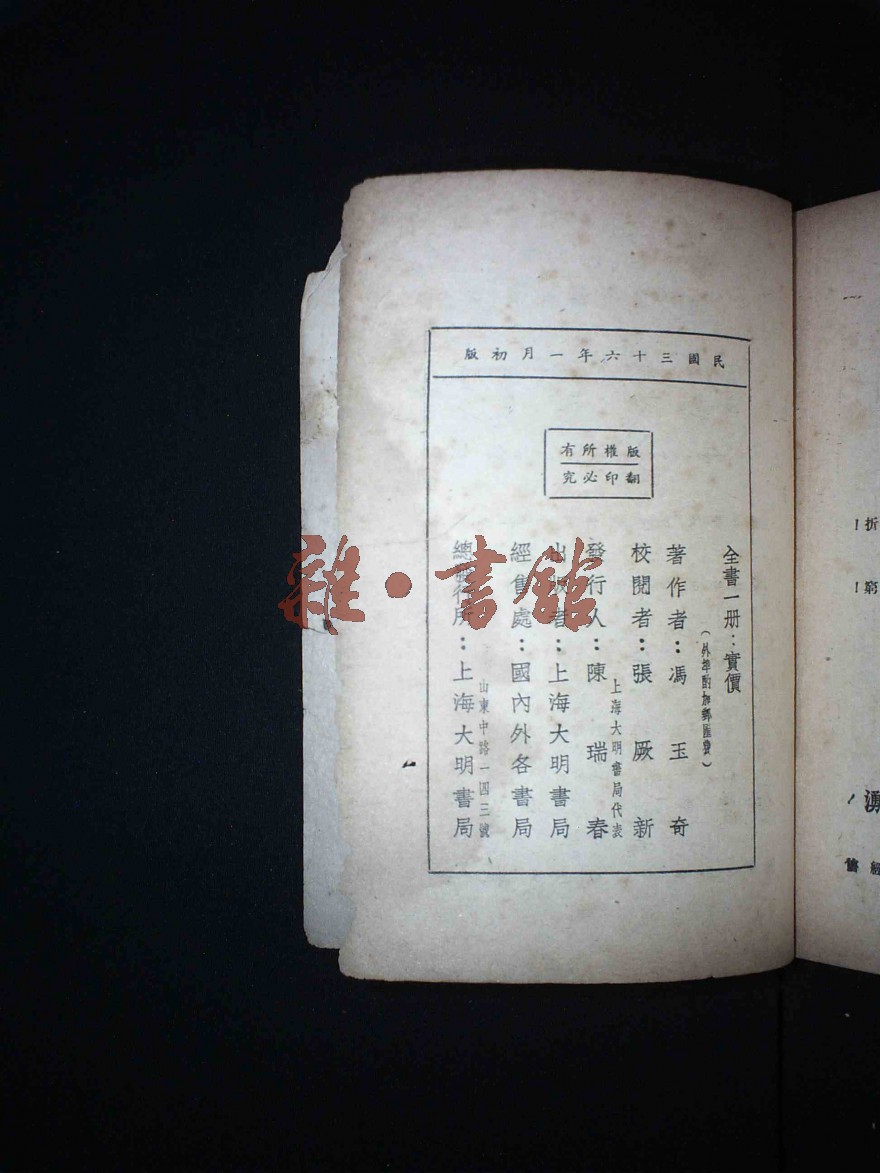 民國三十六年一月初版
版權所有
翻印必究
全書一册：實價
（外埠酌加郵匯費）
著作者：馮玉奇
校閱者：張厥新
上海大明書局代表
發行人：陳瑞春
出版者：上海大明書局
經售處：國內外各書局
山東中路一四三號
總發行所：上海大明書局
雜·書館
折！
窮！
湧
經售